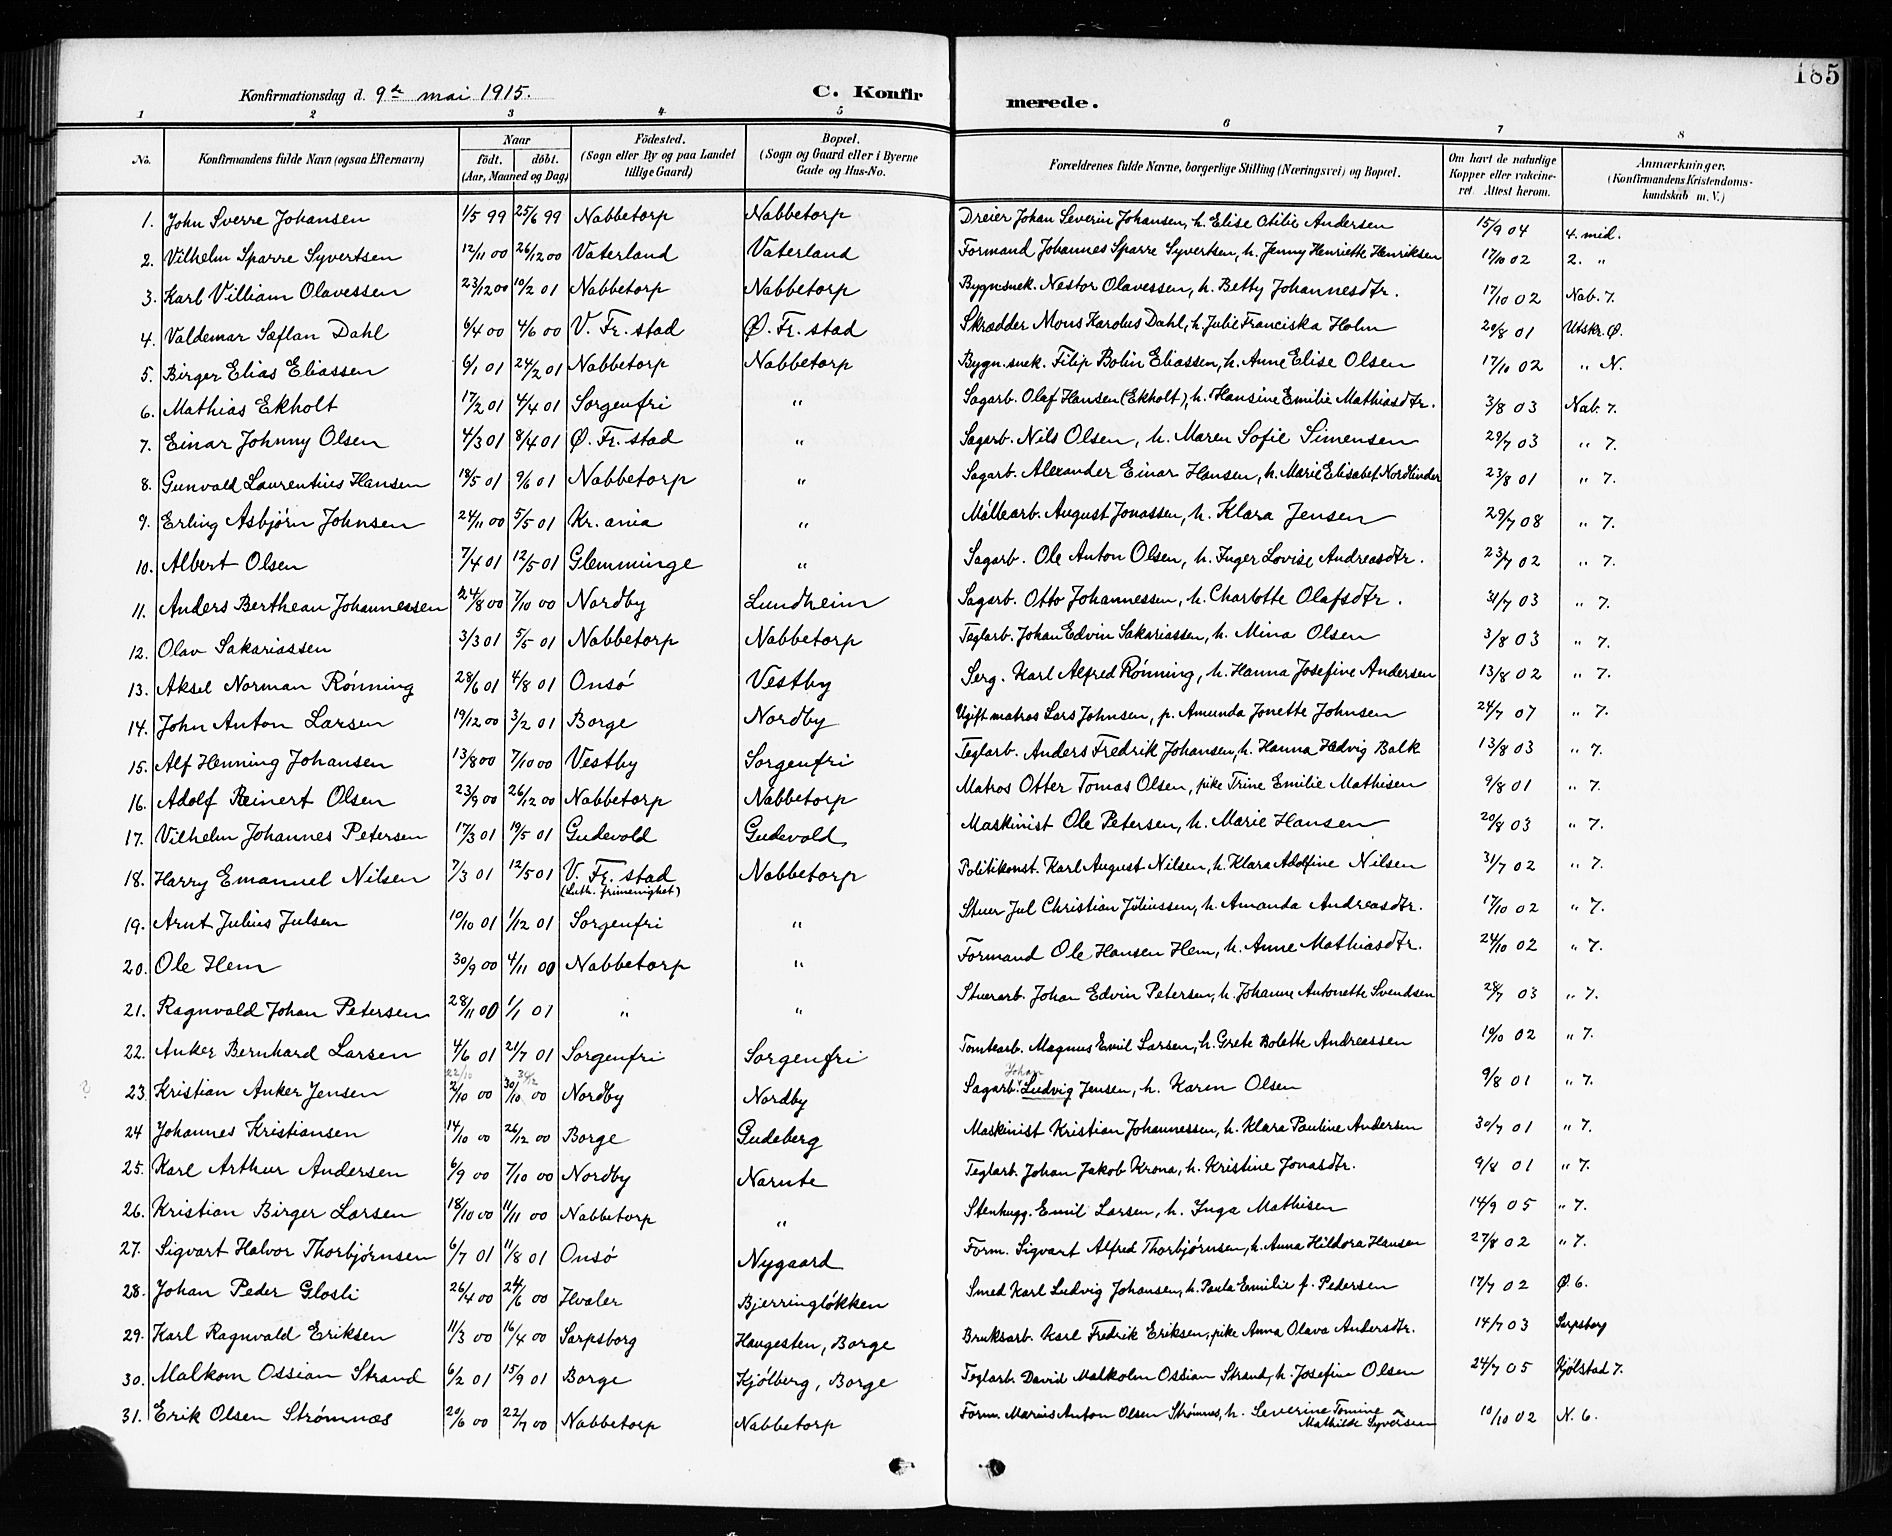 185
Konfirmationsdag d. 9de mai 1915.
C. Konfirmerede.
1 2 3 4 5 6 7 8
No. Konfirmandens fulde Navn (ogsaa Efternavn) Naar födt. döbt. (Aar, Maaned og Dag) Födested. (Sogn eller By og paa Landet tillige Gaard) Bopæl. (Sogn og Gaard eller i Byerne Gade og Hus-No. Forældrenes fulde Navne, borgerlige Stilling (Næringsvei) og Bopæl. Om havt de naturlige Kopper eller vakcineret. Attest herom. Anmærkninger. (Konfirmandens Kristendomskundskab m. V.)
1. John Sverre Johansen 1/5 99 25/6 99 Nabbetorp Nabbetorp Dreier Johan Severin Johansen, h. Elise Otilie Andersen 15/9 04 4. mid.
2. Vilhelm Sparre Syvertsen 12/11 00 26/12 00 Vaterland Vaterland Formand Johannes Sparre Syvertsen, h. Jenny Henriette Henriksen 17/10 02 2. "
3. Karl Villiam Olavessen 23/12 00 10/2 01 Nabbetorp Nabbetorp Bygn.snek. Nestor Olavessen, h. Betty Johannesdtr. 17/10 02 Nab. 7.
4. Valdemar Sæflan Dahl 6/4 00 4/6 00 V. Fr. stad Ø. Fr. stad Skrædder Mons Karolus Dahl, h. Julie Franciska Holm 20/8 01 Utskr. Ø.
5. Birger Elias Eliassen 6/1 01 24/2 01 Nabbetorp Nabbetorp Bygn.snek. Filip Bolin Eliassen, h. Anne Elise Olsen 17/10 02 " N.
6. Mathias Ekholt 17/2 01 4/4 01 Sorgenfri " Sagarb. Olaf Hansen (Ekholt), h. Hansine Emilie Mathiasdtr. 3/8 03 Nab. 7.
7. Einar Johnny Olsen 4/3 01 8/4 01 Ø. Fr. stad " Sagarb. Nils Olsen, h. Maren Sofie Simensen 29/7 03 " 7.
8. Gunvald Laurentius Hansen 18/5 01 9/6 01 Nabbetorp " Sagarb. Alexander Einar Hansen, h. Marie Elisabet Nordlinder 23/8 01 " 7.
9. Erling Asbjørn Johnsen 24/11 00 5/5 01 Kr. ania " Møllearb. August Jonassen, h. Klara Jensen 29/7 08 " 7.
10. Albert Olsen 7/4 01 12/5 01 Glemminge " Sagarb. Ole Anton Olsen, h. Inger Lovise Andreasdtr. 23/7 02 " 7.
11. Anders Berthean Johannessen 24/8 00 7/10 00 Nordby Lundheim Sagarb. Otto Johannessen, h. Charlotte Olafsdtr. 31/7 03 " 7.
12. Olav Sakariassen 3/3 01 5/5 01 Nabbetorp Nabbetorp Teglarb. Johan Edvin Sakariassen, h. Mina Olsen 3/8 03 " 7.
13. Aksel Norman Rönning 28/6 01 4/8 01 Onsö Vestby Serg. Karl Alfred Rönning, h. Hanna Josefine Andersen 13/8 02 " 7.
14. John Anton Larsen 19/12 00 3/2 01 Borge Nordby Ugift matros Lars Johnsen, p. Amunda Jonette Johnsen 24/7 07 " 7.
15. Alf Henning Johansen 13/8 00 7/10 00 Vestby Sorgenfri Teglarb. Anders Fredrik Johansen, h. Hanna Hedvig Balk 13/8 03 " 7.
16. Adolf Reinert Olsen 23/9 00 26/12 00 Nabbetorp Nabbetorp Matros Otter Tomas Olsen, pike Trine Emilie Mathisen 9/8 01 " 7.
17. Vilhelm Johannes Petersen 17/3 01 19/5 01 Gudevold Gudevold Maskinist Ole Petersen, h. Marie Hansen 20/8 03 " 7.
18. Harry Emanuel Nilsen 7/3 01 12/5 01 V. Fr. stad Nabbetorp Politikonst. Karl August Nilsen, h. Klara Adolfine Nilsen 31/7 02 " 7.
(Luth. frimenighet)
19. Arnt Julius Julsen 10/10 01 1/12 01 Sorgenfri " Stuer Jul Christian Juliussen, h. Amanda Andreasdtr. 17/10 02 " 7.
20. Ole Hem 30/9 00 4/11 00 Nabbetorp " Formand Ole Hansen Hem, h. Anne Mathiasdtr. 24/10 02 " 7.
21. Ragnvald Johan Petersen 28/11 00 1/1 01 " " Stuerarb. Johan Edvin Petersen, h. Johanne Antonette Svendsen 28/7 03 " 7.
22. Anker Bernhard Larsen 4/6 01 21/7 01 Sorgenfri Sorgenfri Tomtearb. Magnus Emil Larsen, h. Grete Bolette Andreassen 19/10 02 " 7.
22/10 Johan
23. Kristian Anker Jensen 2/10 00 30/10 00 Nordby Nordby Sagarb. Ludvig Jensen, h. Karen Olsen 9/8 01 " 7.
24 Johannes Kristiansen 14/10 00 26/12 00 Borge Gudeberg Maskinist Kristian Johannessen, h. Klara Pauline Andersen 30/7 01 " 7.
25. Karl Arthur Andersen 6/9 00 7/10 00 Nordby Narute Teglarb. Johan Jakob Krona, h. Kristine Jonasdtr. 9/8 01 " 7.
26. Kristian Birger Larsen 18/10 00 11/11 00 Nabbetorp " Stenhugg. Emil Larsen, h. Inga Mathisen 14/9 05 " 7.
27. Sigvart Halvor Thorbjørnsen 6/7 01 11/8 01 Onsö Nygaard Form. Sigvart Alfred Thorbjørnsen, h. Anna Hildora Hansen 27/8 02 " 7.
28. Johan Peder Glosli 26/4 00 24/6 00 Hvaler Bjerringløkken Smed Karl Ludvig Johansen, h. Paula Emilie f. Pedersen 17/7 02 Ø 6.
29. Karl Ragnvald Eriksen 11/3 00 16/4 00 Sarpsborg Haugesten, Borge Bruksarb. Karl Fredrik Eriksen, pike Anna Olava Andersdtr. 14/7 03 Sarpsborg
30. Malkom Ossian Strand 6/2 01 15/9 01 Borge Kjølberg, Borge Teglarb. David Malkolm Ossian Strand, h. Josefine Olsen 24/7 05 Kjølstad 7.
31. Erik Olsen Strømnæs 20/6 00 22/7 00 Nabbetorp Nabbetorp Form. Marius Anton Olsen Strømnes, h. Severine Tomine 10/10 02 N. 6.
Mathilde Syversen